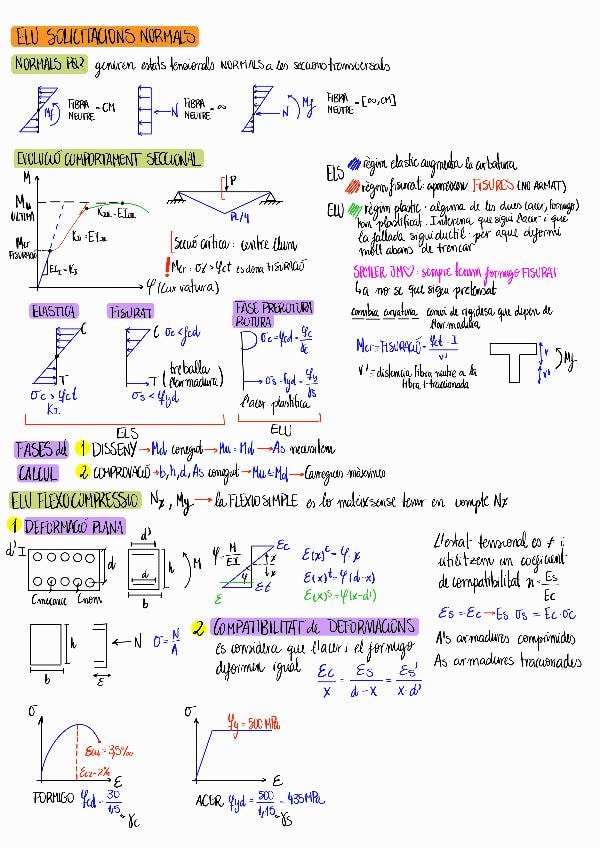 ELU SOLICITACIONS NORMALS
NORMALS generen estats tensionals NORMALS a les seccions transversals
Mf FIBRA NEUTRE = CM
N FIBRA NEUTRE = ∞
N Mf FIBRA NEUTRE = [∞, CM]
EVOLUCIÓ COMPORTAMENT SECCIONAL
M
Mu
ÚLTIMA
Mcr
FISURACIÓ
φ (curvatura)
P
PL/4
Secció crítica: centre llum
! Mcr: σt > fct es dona FISURACIÓ
ELS règim elàstic augmenta la curvatura
règim fisurat: apareixen FISURES (NO ARMAT)
ELU règim plàstic: alguna de les dues (acer, formigó)
han plastificat. Interessa que sigui l'acer i que
la fallada sigui dúctil: per a que deformi
molt abans de trencar
SPOILER JM♡: sempre tenim formigó FISURAT
↳ a no ser que sigui pretensat
canvia curvatura canvi de rigidesa que depèn de
l'armadura
Mcr = FISURACIÓ = fct · I / v'
v' = distància fibra neutre a la
fibra + traccionada
v
v'
My
ELÀSTICA
FISURAT
FASE PRERUTURA
ROTURA
C
T
σc > fct
C σc < fcd
T (treballa l'armadura)
σs < fyd
σc = fcd = fc/γc
σs = fyd = fy/γs
l'acer plastifica
ELS
ELU
FASES del CÀLCUL
1 DISSENY → Md conegut → Mu = Md → As necessitem
2 COMPROVACIÓ → b, h, d, As conegut → Mu ≤ Md → Càrregues màximes
ELU FLEXOCOMPRESSIÓ Nx, My → la FLEXIÓ SIMPLE es lo mateix sense tenir en compte Nx
1 DEFORMACIÓ PLANA
d' I
d
Cmecànic Cnom
d'
d
h
b
M
φ = M/EI
εc
x
z
φ
εt
ε(x)ᶜ = φ · x
ε(x)ᵗ = φ (d-x)
ε(x)ˢ = φ (x-d')
L'estat tensional es ≠ i
utilitzem un coeficient
de compatibilitat n = Es/Ec
εs = εc → Es σs = Ec · σc
A's armadures comprimides
As armadures traccionades
h
b
ε
← N σ = N/A
2 COMPATIBILITAT de DEFORMACIONS
es considera que l'acer i el formigó
deformen igual
εc/x = εs/d-x = εs'/x-d'
σ
εcu = 3,5‰
εc2 = 2‰
ε
FORMIGÓ fcd = 30/1,5 = γc
σ
fy = 500 MPa
ε
ACER fyd = 500/1,15 = 435 MPa
γs